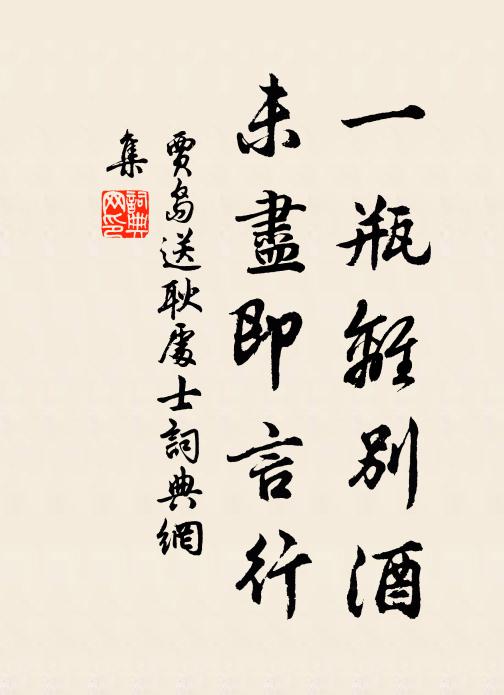 一瓶離別酒
未盡即言行
賈島送耿處士詞典網
集
詞典網印